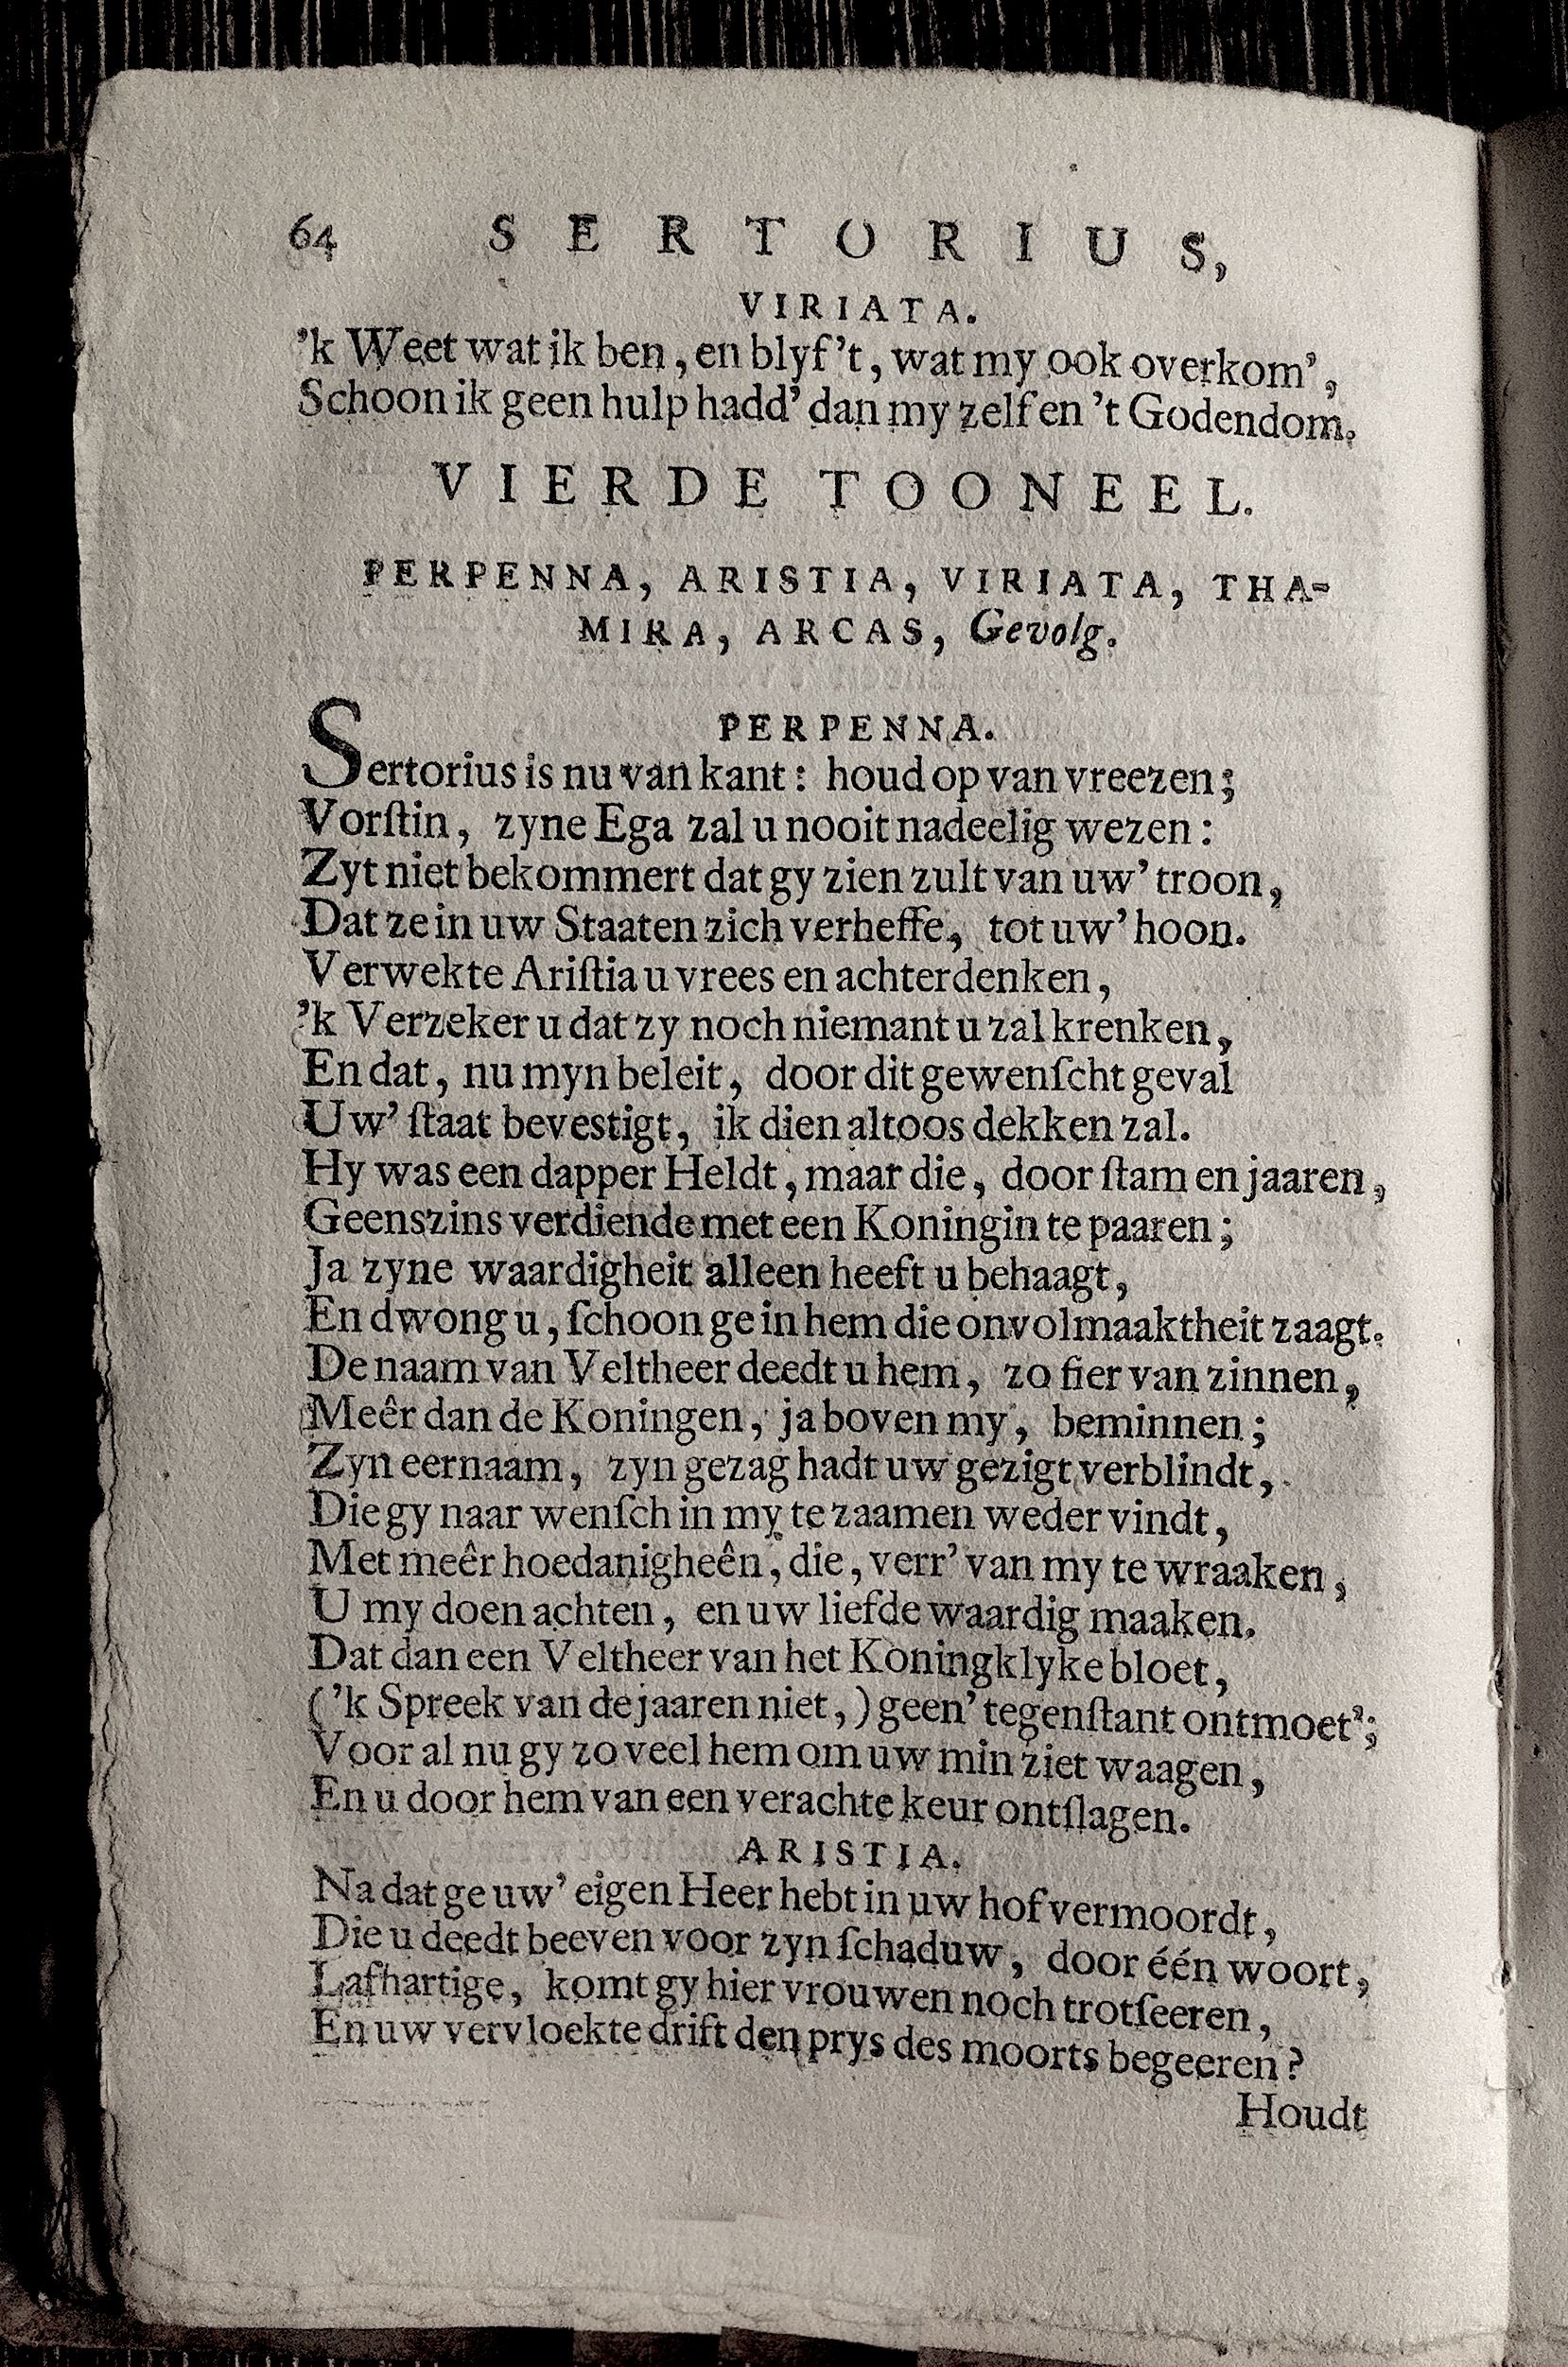 64 SERTORIUS,
VIRIATA.
'k Weet wat ik ben, en blyf 't, wat my ook overkom',
Schoon ik geen hulp hadd' dan my zelf en 't Godendom.
VIERDE TOONEEL.
PERPENNA, ARISTIA, VIRIATA, THA-
MIRA, ARCAS, Gevolg.
PERPENNA.
Sertorius is nu van kant: houd op van vreezen;
Vorſtin, zyne Ega zal u nooit nadeelig wezen:
Zyt niet bekommert dat gy zien zult van uw' troon,
Dat ze in uw Staaten zich verheffe, tot uw' hoon.
Verwekte Ariſtia u vrees en achterdenken,
'k Verzeker u dat zy noch niemant u zal krenken,
En dat, nu myn beleit, door dit gewenſcht geval
Uw' ſtaat bevestigt, ik dien altoos dekken zal.
Hy was een dapper Heldt, maar die, door ſtam en jaaren,
Geenszins verdiende met een Koningin te paaren;
Ja zyne waardigheit alleen heeft u behaagt,
En dwong u, ſchoon ge in hem die onvolmaaktheit zaagt.
De naam van Veltheer deedt u hem, zo fier van zinnen,
Meêr dan de Koningen, ja boven my, beminnen;
Zyn eernaam, zyn gezag hadt uw gezigt verblindt,
Die gy naar wenſch in my te zaamen weder vindt,
Met meêr hoedanigheên, die, verr' van my te wraaken,
U my doen achten, en uw liefde waardig maaken.
Dat dan een Veltheer van het Koningklyke bloet,
('k Spreek van de jaaren niet,) geen' tegenſtant ontmoet';
Voor al nu gy zo veel hem om uw min ziet waagen,
En u door hem van een verachte keur ontſlagen.
ARISTIA.
Na dat ge uw' eigen Heer hebt in uw hof vermoordt,
Die u deedt beeven voor zyn ſchaduw, door één woort,
Lafhartige, komt gy hier vrouwen noch trotſeeren,
En uw vervloekte drift den prys des moorts begeeren?
Houdt